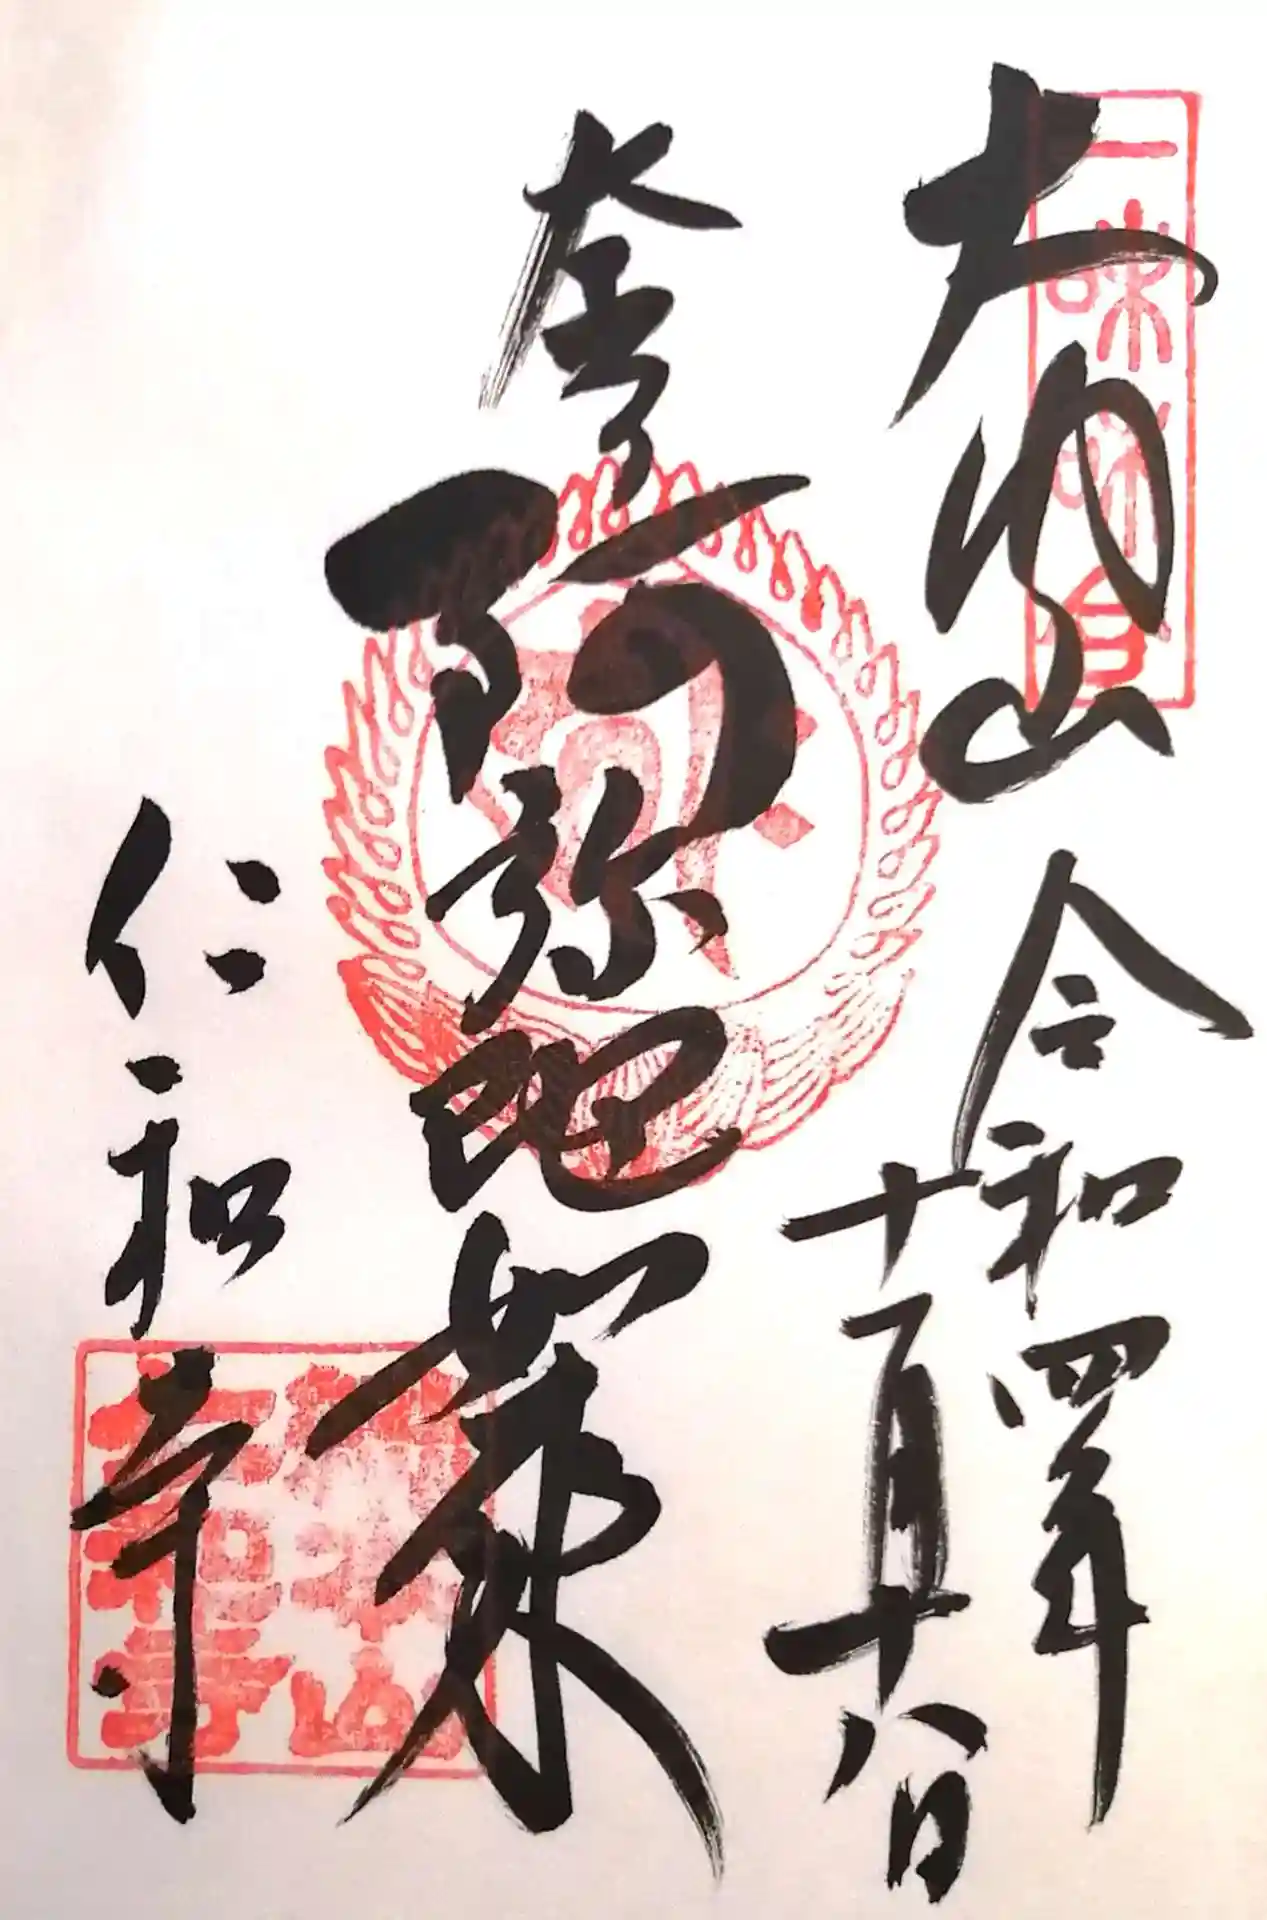 一味和合
大内山
令和四年
十一月十八日
阿弥陀如来
仁和寺
仁和寺